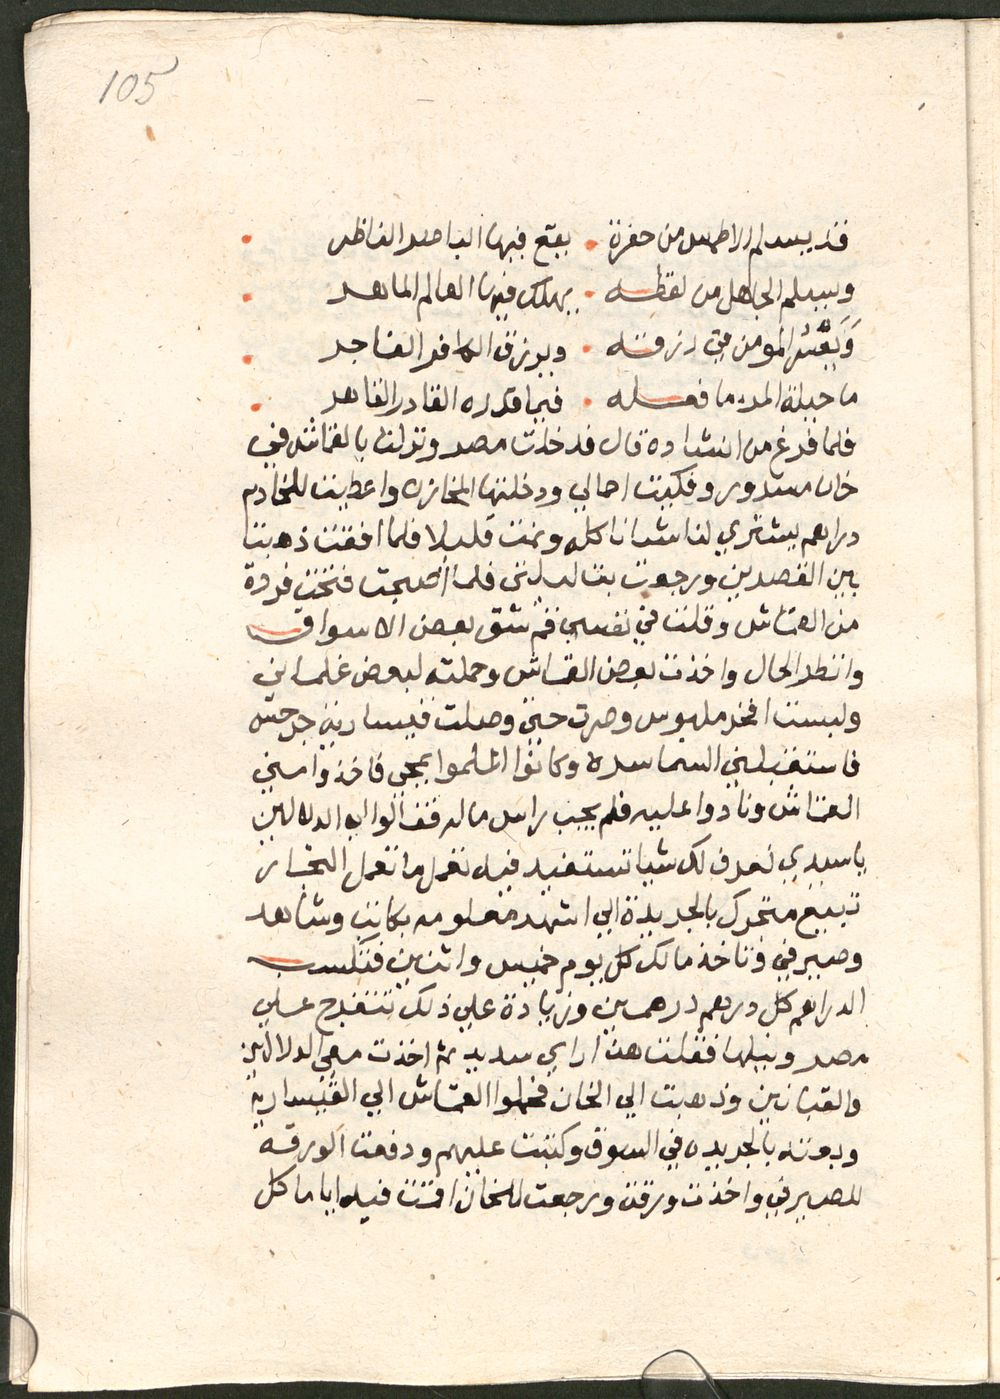 105
قد يسلم الاطمس من حفرة • يقع فيها الباصر الناظر •
ويسلم الجاهل من لفظه • يهلك فيها العالم الماهر •
وَيَعْسُر المومن في رزقه • ويرزق الكافر الفاجر •
ما حيلة المرء ما فعله • فيما قدره القادر القاهر •
فلما فرغ من انشاده قال فدخلت مصر ونزلنا بالقماش في
خان مسرور وفكيت احمالي ودخلتها المخازن واعطيت للخادم
دراهم يشتري لنا شيا ناكله ونمت قليلا فلما افقت ذهبت
بين القصرين ورجعت بت ليلتي فلما اصبحت فتحت فردة
من القماش وقلت في نفسي قم شق بعض الاسواق
وانظر الحال واخذت بعض القماش وحملته لبعض غلماني
ولبست افخر ملبوس وصرت حتي وصلت قيسارية جرجس
فاستقبلني السماسره وكانوا اعلموا بمجي فاخذوا مني
القماش ونادوا عليه فلم يجب راس ماله فقالوا لي الدلالين
يا سيدي نعرف لك شيا تستفيد فيه تعمل ما تعمل التجار
تبيع متجرك بالجريدة الي اشهر معلومه بكاتب وشاهد
وصيرفي وتاخذ مالك كل يوم خميس واثنين فتكسب
الدراهم كل درهم درهمين وزيادة علي ذلك تتفرج علي
مصر ونيلها فقلت هذا راي سديد ثم اخذت معي الدلالين
والقبانين وذهبت الي الخان فحملوا القماش الي القيسارية
وبعته بالجريده في السوق وكتبت عليهم ودفعت الورقه
للصيرفي واخذت ورقه ورجعت للخان اقمت فيه اياما كل